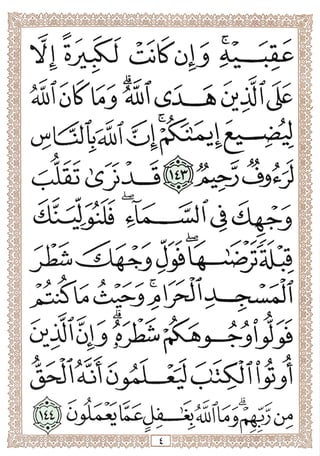 عَقِبَيۡهِۚ وَإِن كَانَتۡ لَكَبِيرَةً إِلَّا
عَلَى ٱلَّذِينَ هَدَى ٱللَّهُۗ وَمَا كَانَ ٱللَّهُ
لِيُضِيعَ إِيمَٰنَكُمۡۚ إِنَّ ٱللَّهَ بِٱلنَّاسِ
لَرَءُوفٞ رَّحِيمٞ ١٤٣ قَدۡ نَرَىٰ تَقَلُّبَ
وَجۡهِكَ فِي ٱلسَّمَآءِۖ فَلَنُوَلِّيَنَّكَ
قِبۡلَةٗ تَرۡضَىٰهَاۚ فَوَلِّ وَجۡهَكَ شَطۡرَ
ٱلۡمَسۡجِدِ ٱلۡحَرَامِۚ وَحَيۡثُ مَا كُنتُمۡ
فَوَلُّواْ وُجُوهَكُمۡ شَطۡرَهُۥۗ وَإِنَّ ٱلَّذِينَ
أُوتُواْ ٱلۡكِتَٰبَ لَيَعۡلَمُونَ أَنَّهُ ٱلۡحَقُّ
مِن رَّبِّهِمۡۗ وَمَا ٱللَّهُ بِغَٰفِلٍ عَمَّا يَعۡمَلُونَ ١٤٤
٤